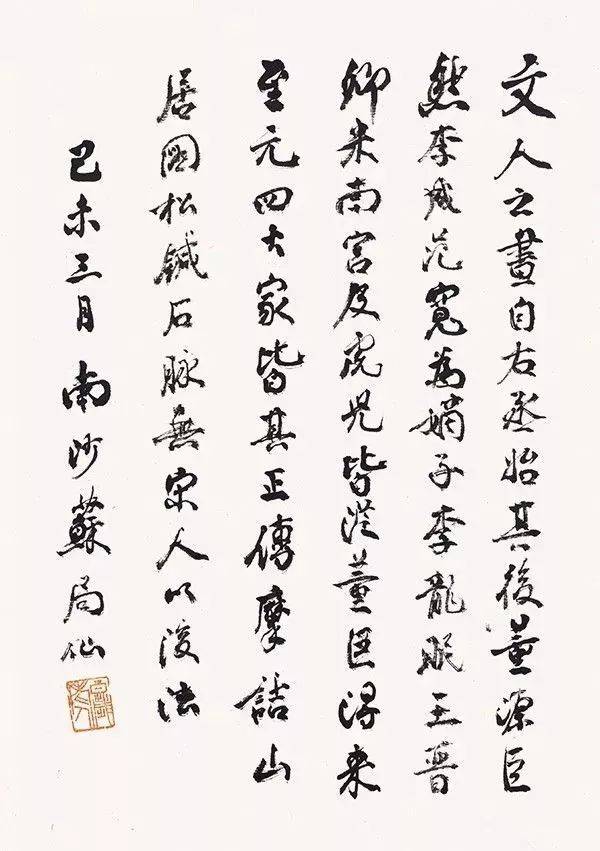 文人之畫自右丞始其後董源臣
然李成范寬為嫡子李龍眠王晉
卿米南宮及虎兒皆從董巨得來
至元四大家皆其正傳摩詰山
居圖松鍼石脉無宋人以後法
己未三月南沙蘇局仙